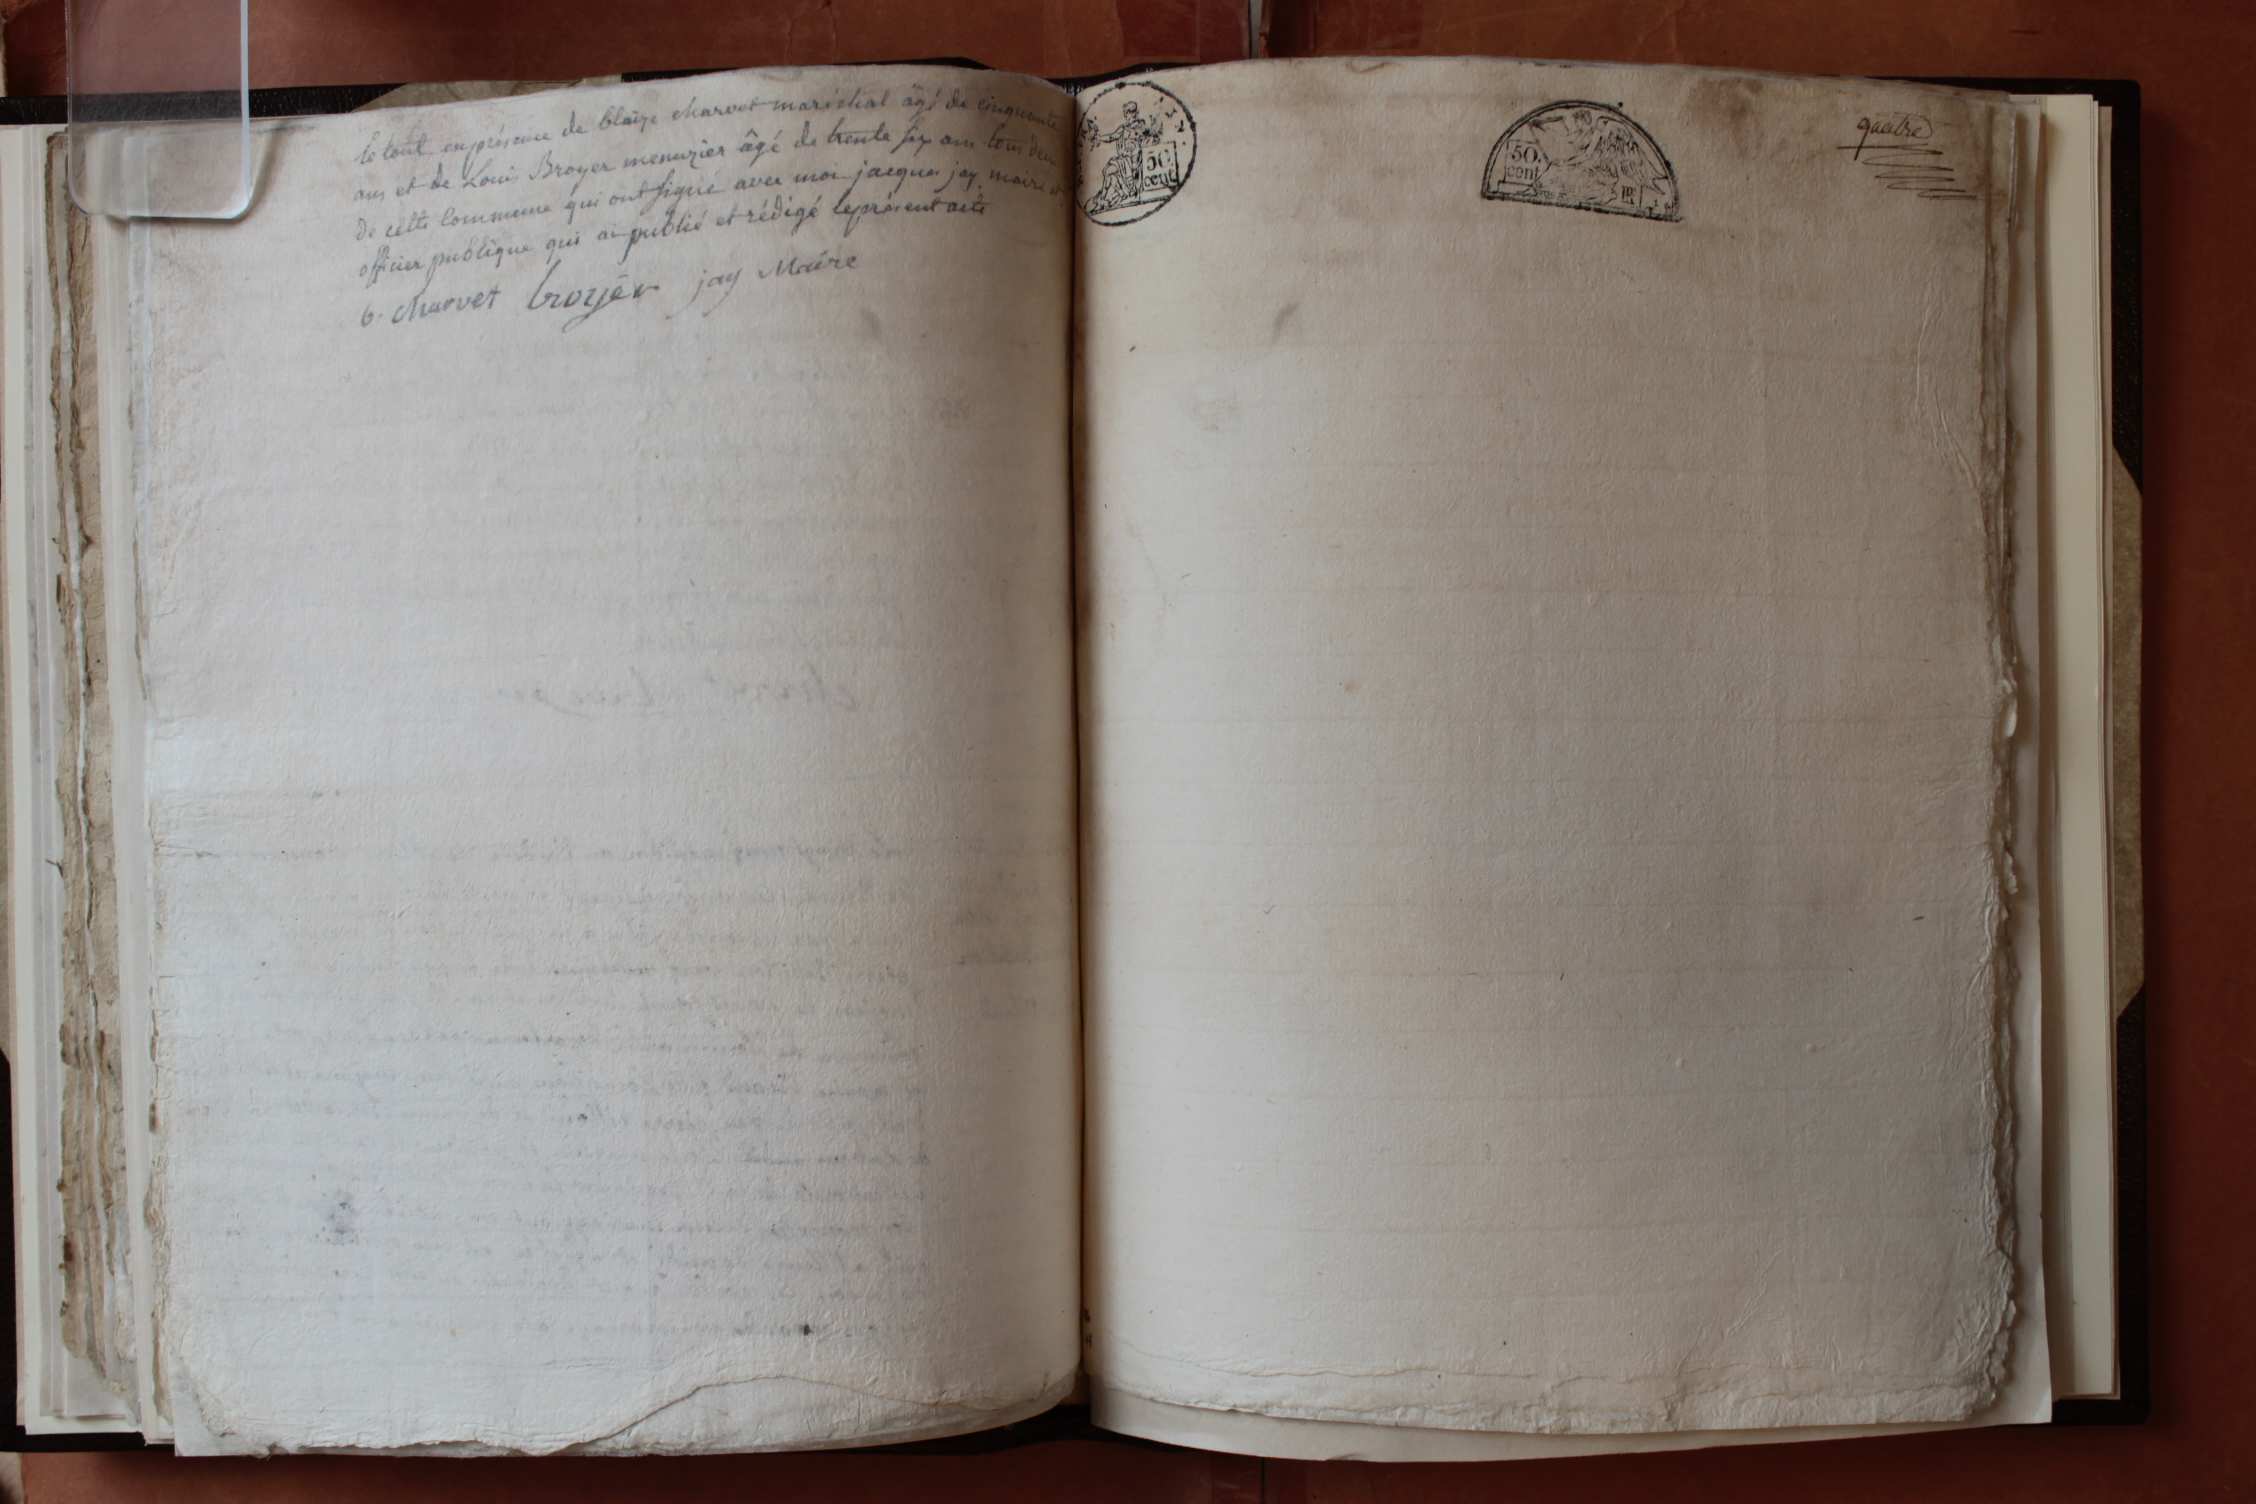 le tout en présence de blaize charvet maréchal âgé de cinquante
ans et de Louis Broyer menuzier âgé de trente six ans tous deux
de cette commune qui ont signé avec moi jacques jay maire et
officier publique qui ai publié et rédigé le présent acte
b. charvet broyer jay Maire
50 cent
50. cent
quatre